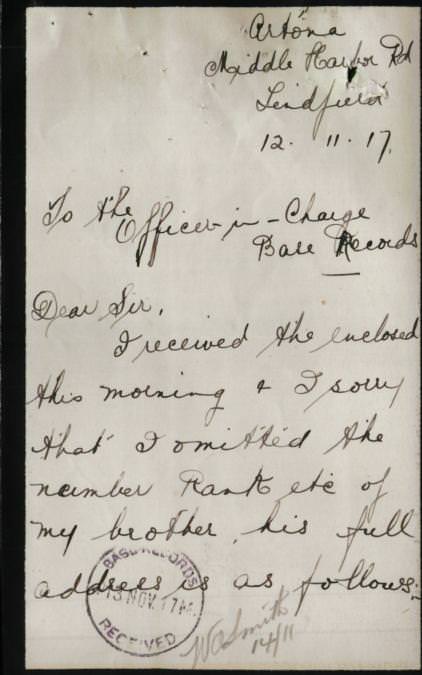 Artona
Middle Harbor Rd
Lindfield
12. 11. 17.
To the
Officer-in-Charge
Base Records
Dear Sir,
I received the enclosed
this morning & I sorry
that I omitted the
number Rank etc of
my brother, his full
address is as follows:-
BASE RECORDS
13 NOV. 17
RECEIVED
Smith
14/11